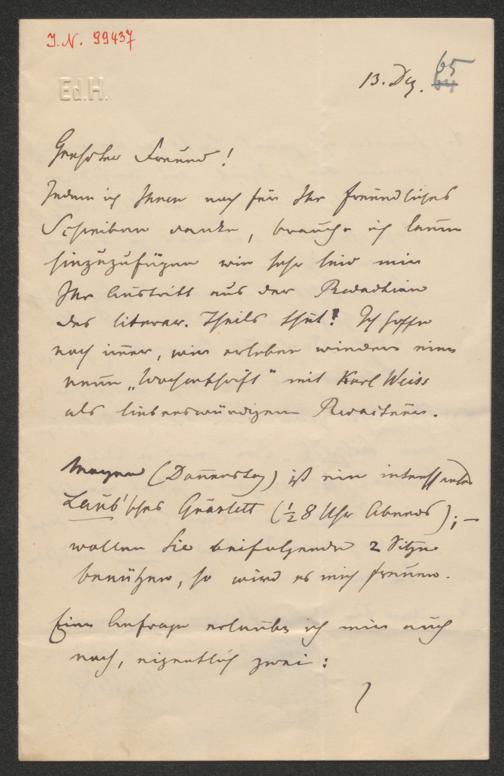 I.N. 99437
Ed.H.
13. Dz. 65
Geehrter Freund!
Indem ich Ihnen noch für Ihr freundliches
Schreiben danke, brauche ich kaum
hinzuzufügen wie sehr leid mir
Ihr Austritt aus der Redaction
des literar. Theils thut! Ich hoffe
noch immer, wir erleben wieder eine
neue „Wochenschrift" mit Karl Weiss
als liebenswürdigem Redacteur.
Morgen (Donnerstag) ist ein interessantes
Laub'sches Quartett (½ 8 Uhr Abends); –
wollen Sie beifolgende 2 Sitze
benützen, so wird es mich freuen.
Eine Anfrage erlaube ich mir auch
noch, eigentlich zwei: